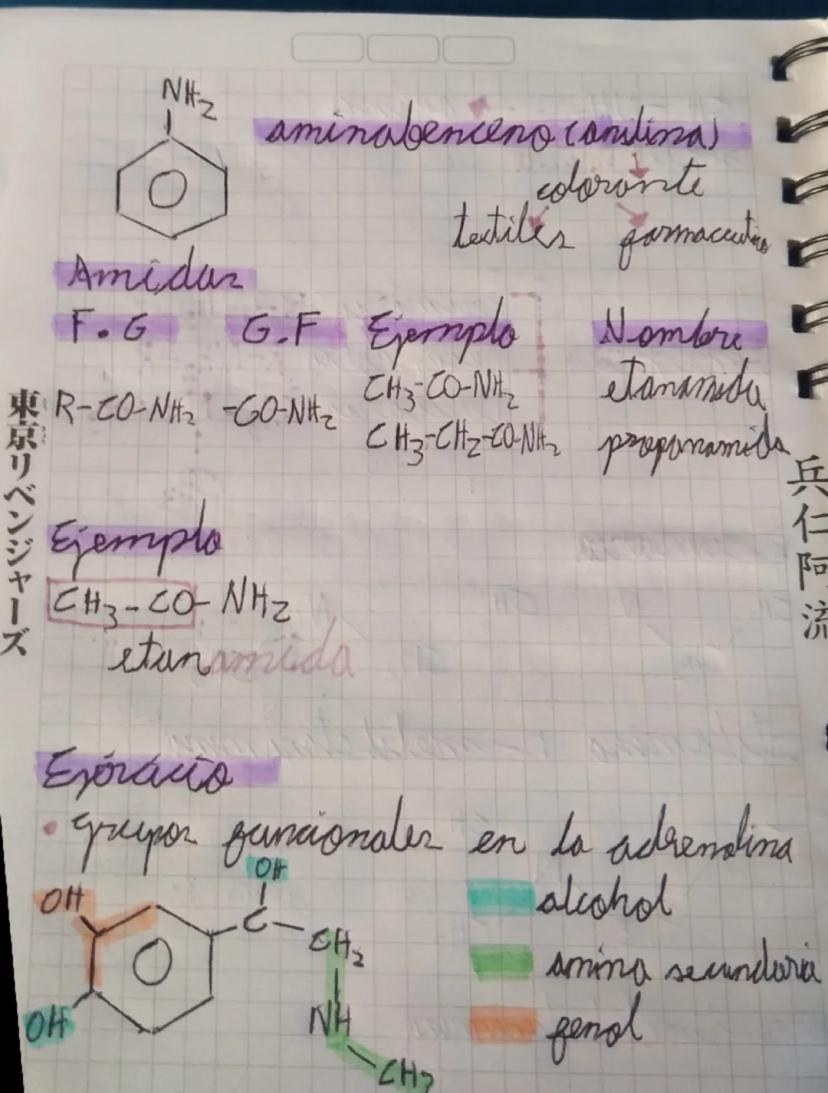 NH₂
aminabenceno (anilina)
colorante
textiles farmaceuticos
Amidas
F.G G.F Ejemplo Nombre
R-CO-NH₂ -CO-NH₂ CH₃-CO-NH₂ etanamida
CH₃-CH₂-CO-NH₂ propanamida
東京リベンジャーズ
兵仁阿流
Ejemplo
CH₃-CO-NH₂
etanamida
Ejercicio
• grupos funcionales en la adrenalina
OH
OH
C-CH₂
OH
NH
CH₃
alcohol
amina secundaria
fenol